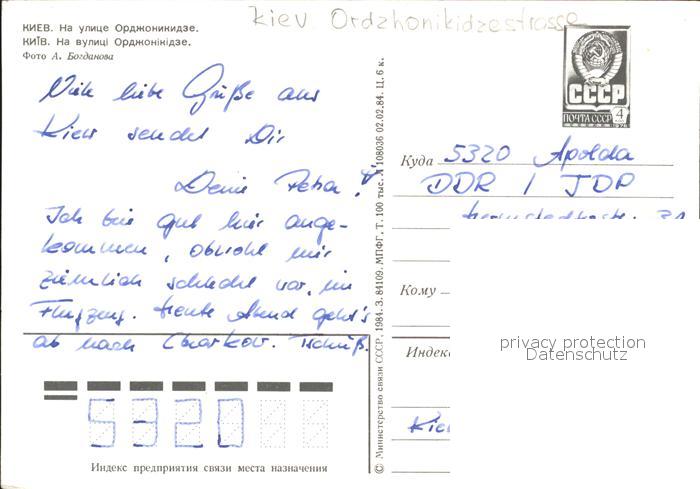 Kiev Ordzhonikidzestrasse
КИЕВ. На улице Орджоникидзе.
КИЇВ. На вулиці Орджонікідзе.
Фото А. Богданова
Viele liebe Grüße aus
Kiew sendet Dir
Deine Petra!
Ich bin gut hier ange-
kommen, obwohl mir
ziemlich schlecht war im
Flugzeug. Heute Abend geht's
ab nach Charkow. Tschüß.
5320
Индекс предприятия связи места назначения
© Министерство связи СССР. 1984. З. 84109. МПФГ. Т. 100 тыс. А 108036 02.02.84. Ц. 6 к.
СССР
ПОЧТА СССР 4
Куда 5320 Apolda
DDR / ГДР
31
Кому
Индекс
Kie
privacy protection
Datenschutz